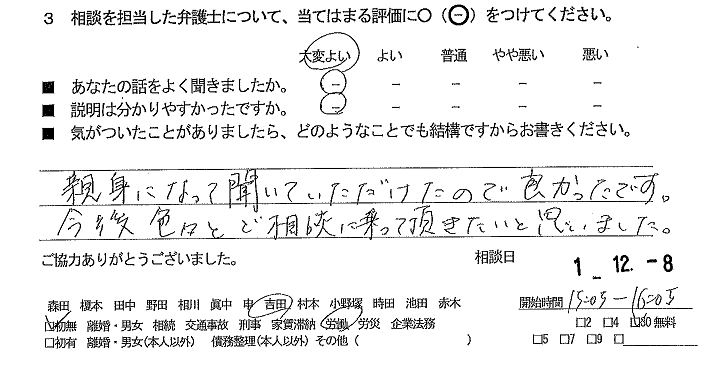 3 相談を担当した弁護士について、当てはまる評価に○（⊖）をつけてください。
大変よい よい 普通 やや悪い 悪い
■ あなたの話をよく聞きましたか。 － － － － －
■ 説明は分かりやすかったですか。 － － － － －
■ 気がついたことがありましたら、どのようなことでも結構ですからお書きください。
親身になって聞いていただけたので良かったです。
今後色々とご相談に乗って頂きたいと思いました。
ご協力ありがとうございました。 相談日 1 － 12. －8
森田 榎本 田中 野田 相川 眞中 申 吉田 村本 小野塚 時田 池田 赤木 開始時間 15:05－16:05
□初無 離婚・男女 相続 交通事故 刑事 家賃滞納 労働 労災 企業法務 □2 □4 □30無料
□初有 離婚・男女(本人以外) 債務整理(本人以外) その他（ ） □5 □7 □9 □